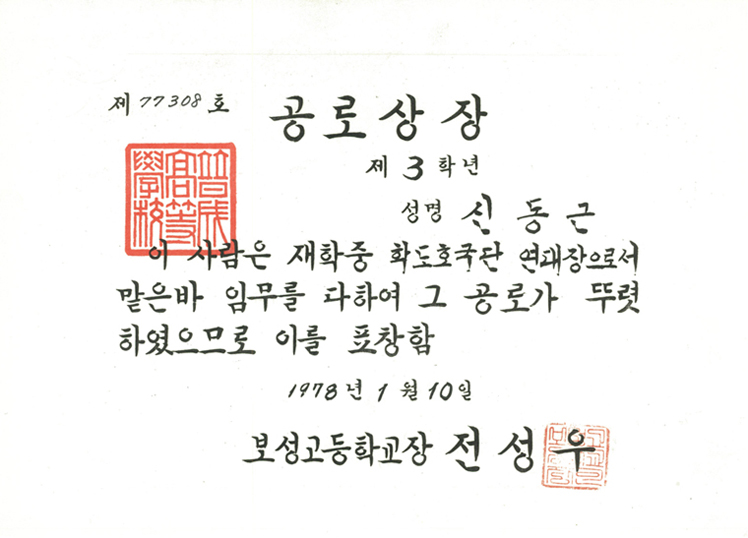 제 77308 호
공로상장
제 3 학년
성명 신동근
普成
高等
學校
이 사람은 재학중 학도호국단 연대장으로서
맡은바 임무를 다하여 그 공로가 뚜렷
하였으므로 이를 표창함
1978년 1월 10일
보성고등학교장 전성우